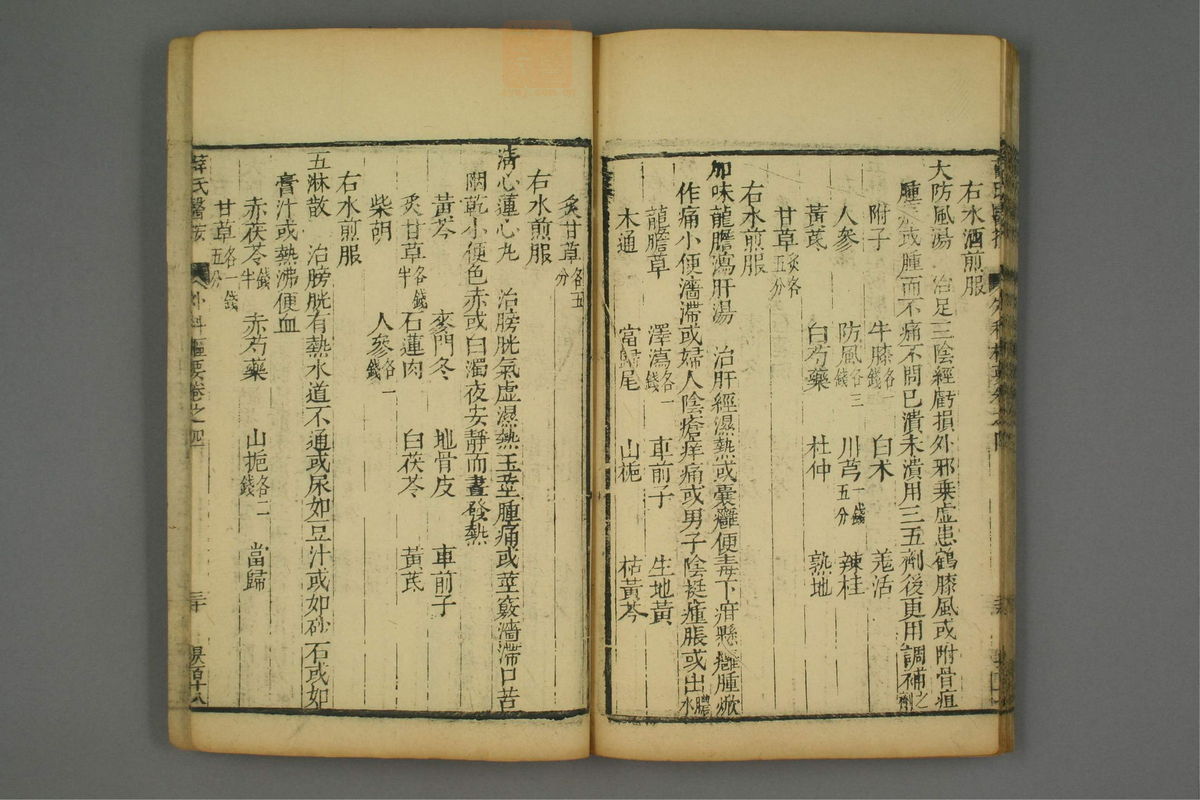 右水酒煎服
大防風湯　治足三陰經虧損外邪乘虛患鶴膝風或附骨疽
腫或腫而不痛不問已潰未潰用三五劑後更用調補之劑
附子　牛膝各一錢　白术　羗活
人參　防風各三錢　川芎一錢五分　辣桂
黃芪　白芍藥　杜仲　熟地
甘草炙各五分
右水煎服
加味龍膽瀉肝湯　治肝經濕熱或囊癰便毒下疳懸癰腫焮
作痛小便濇滯或婦人陰瘡痒痛或男子陰挺腫脹或出膿水
龍膽草　澤瀉各一錢　車前子　生地黃
木通　當歸尾　山梔　枯黃芩
炙甘草各五分
右水煎服
清心蓮心丸　治膀胱氣虛濕熱玉莖腫痛或莖竅濇滯口苦
咽乾小便色赤或白濁夜安靜而晝發熱
黃芩　麥門冬　地骨皮　車前子
炙甘草各錢半　石蓮肉　白茯苓　黃芪
柴胡　人參各一錢
右水煎服
五淋散　治膀胱有熱水道不通或尿如豆汁或如砂石或如
膏汁或熱沸便血
赤茯苓錢半　赤芍藥　山梔各二錢　當歸
甘草各一錢五分
薛氏醫按　外科樞要卷之四　三十